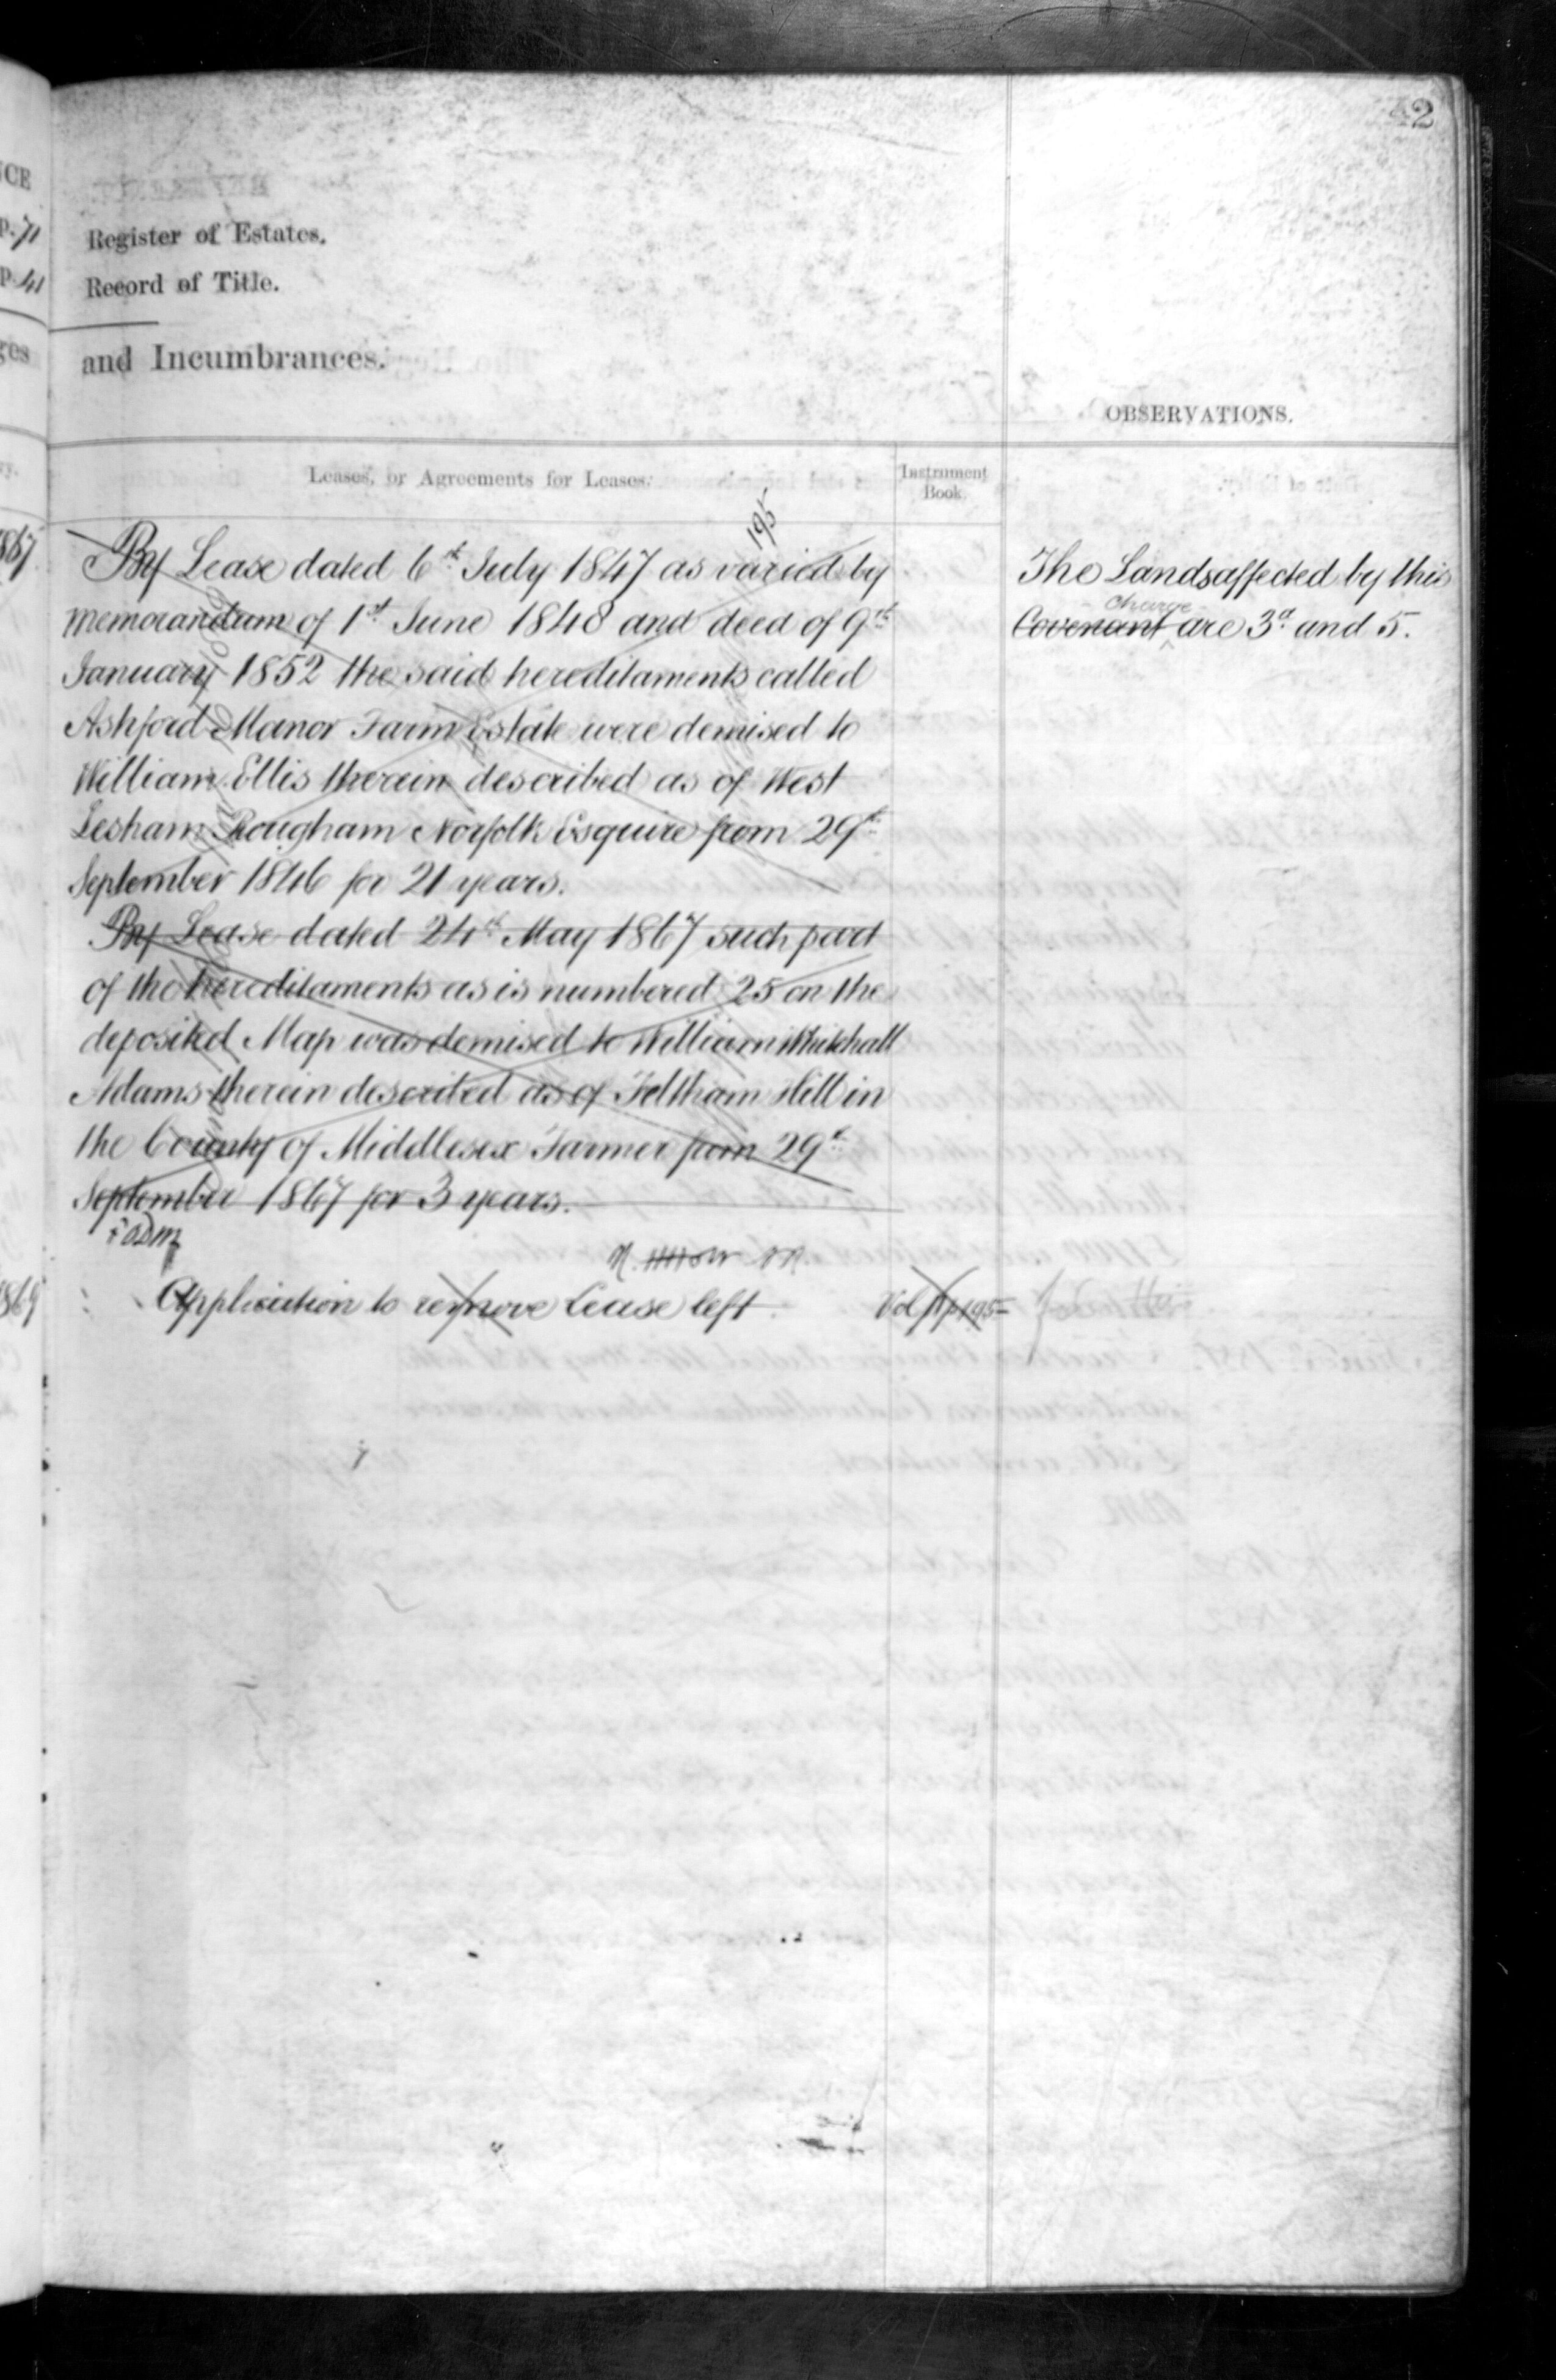 42
CE
p. 71
p. 41
ges
Register of Estates.
Record of Title.
and Incumbrances.
OBSERVATIONS.
Leases, or Agreements for Leases.
Instrument
Book.
195
By Lease dated 6th July 1847 as varied by
memorandum of 1st June 1848 and deed of 9th
January 1852 the said hereditaments called
Ashford Manor Farm Estate were demised to
William Ellis therein described as of West
Lesham Rougham Norfolk Esquire from 29th
September 1846 for 21 years.
By Lease dated 24th May 1867 such part
of the hereditaments as is numbered 25 on the
deposited Map was demised to William Whitehall
Adams therein described as of Feltham Hill in
the County of Middlesex Farmer from 29th
September 1867 for 3 years.
Application to remove Lease left
Vol p 195
The Lands affected by this
charge
Covenant are 3a and 5.
867
869